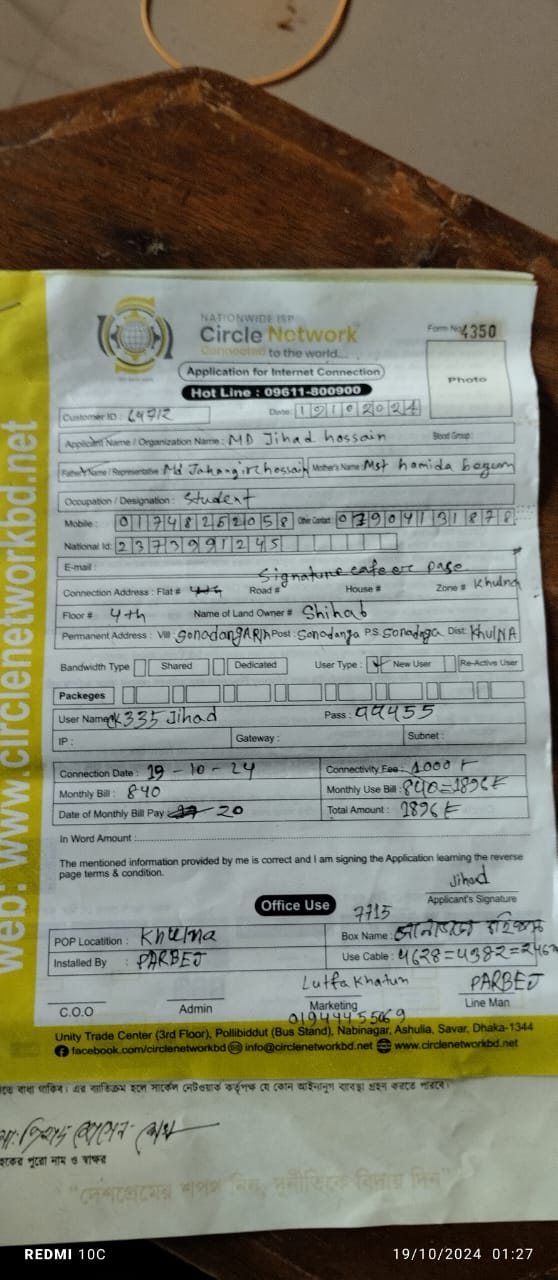 NATIONWIDE ISP
Circle Network
Connected to the world...
Form No 4350
Application for Internet Connection
Photo
Hot Line : 09611-800900
Customer ID : 64712 Date: 19102024
Applicant Name / Organization Name : MD Jihad hossain Blood Group :
Father Name / Representative Md Jahangir hossain Mother's Name Mst hamida begum
Occupation / Designation : Student
Mobile : 01748252058 Other Contact
National Id: 2373991245
E-mail :
Signature cafe
Connection Address : Flat # Road # House # Zone # Khulna
Floor # 4th Name of Land Owner # Shihab
Permanent Address : Vill Post : Sonadanga P.S Sonadaga Dist: KhulNA
Bandwidth Type Shared Dedicated User Type : New User Re-Active User
Packeges
User Name 335 Jihad Pass : 99455
IP : Gateway : Subnet :
Connection Date : 19-10-24 Connectivity Fee : 1000
Monthly Bill : 840 Monthly Use Bill : 840=
Date of Monthly Bill Pay 20 Total Amount :
In Word Amount :
The mentioned information provided by me is correct and I am signing the Application learning the reverse
page terms & condition.
Jihad
Applicant's Signature
Office Use
7715
POP Locatition : Khulna Box Name :
Installed By : PARBEJ Use Cable : 4628=4382=
Lutfa Khatun PARBEJ
C.O.O Admin Marketing Line Man
Unity Trade Center (3rd Floor), Pollibiddut (Bus Stand), Nabinagar, Ashulia, Savar, Dhaka-1344
facebook.com/circlenetworkbd info@circlenetworkbd.net www.circlenetworkbd.net
web: www.circlenetworkbd.net
তে বাধ্য থাকিব। এর ব্যতিক্রম হলে সার্কেল নেটওয়ার্ক কর্তৃপক্ষ যে কোন আইনানুগ ব্যবস্থা গ্রহন করতে পারবে।
হকের পুরো নাম ও স্বাক্ষর
"দেশপ্রেমের শপথ নিন, দুর্নীতিকে বিদায় দিন"
REDMI 10C 19/10/2024 01:27